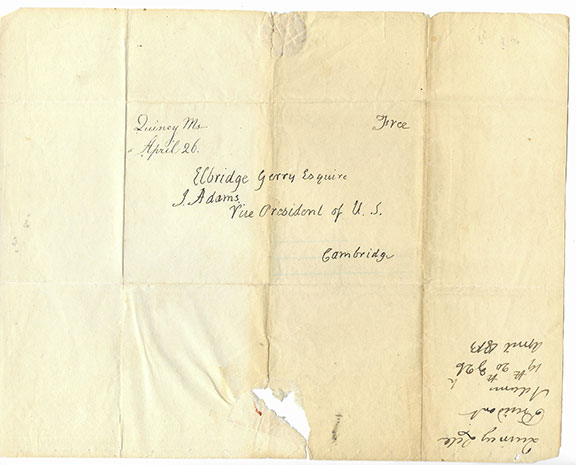 Quincy Ms
April 26.
Free
Elbridge Gerry Esquire
J. Adams
Vice President of U. S.
Cambridge
Quincy
President
Adams
19th 20 & 26
April 1813